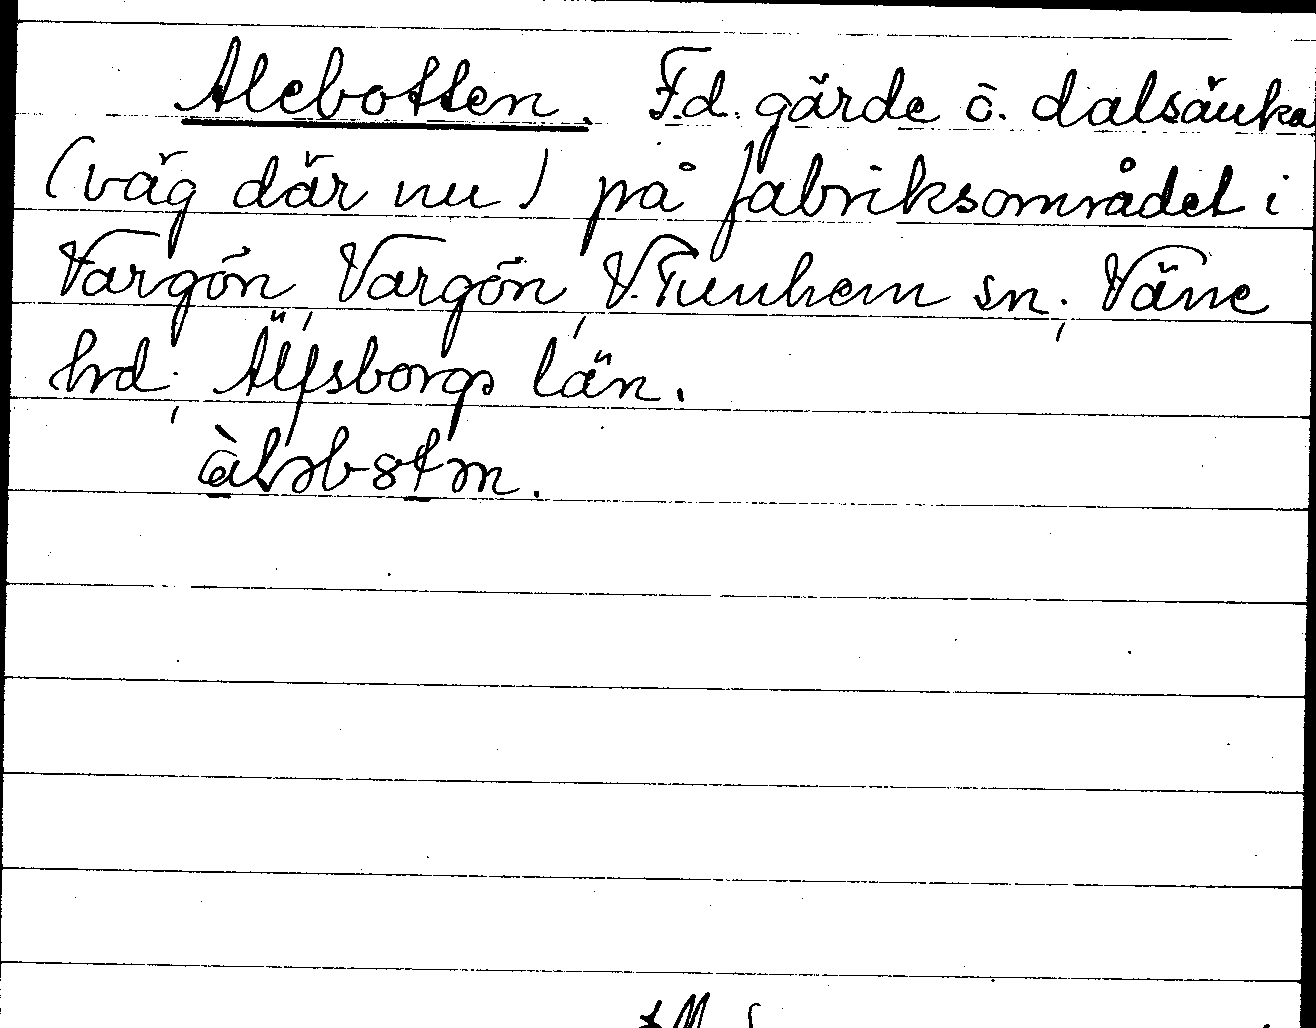 Alebotten. F.d. gärde o. dalsänka
(väg där nu) på fabriksområdet i
Vargön, Vargön, V. Tunhem sn; Väne
hrd; Älfsborgs län.